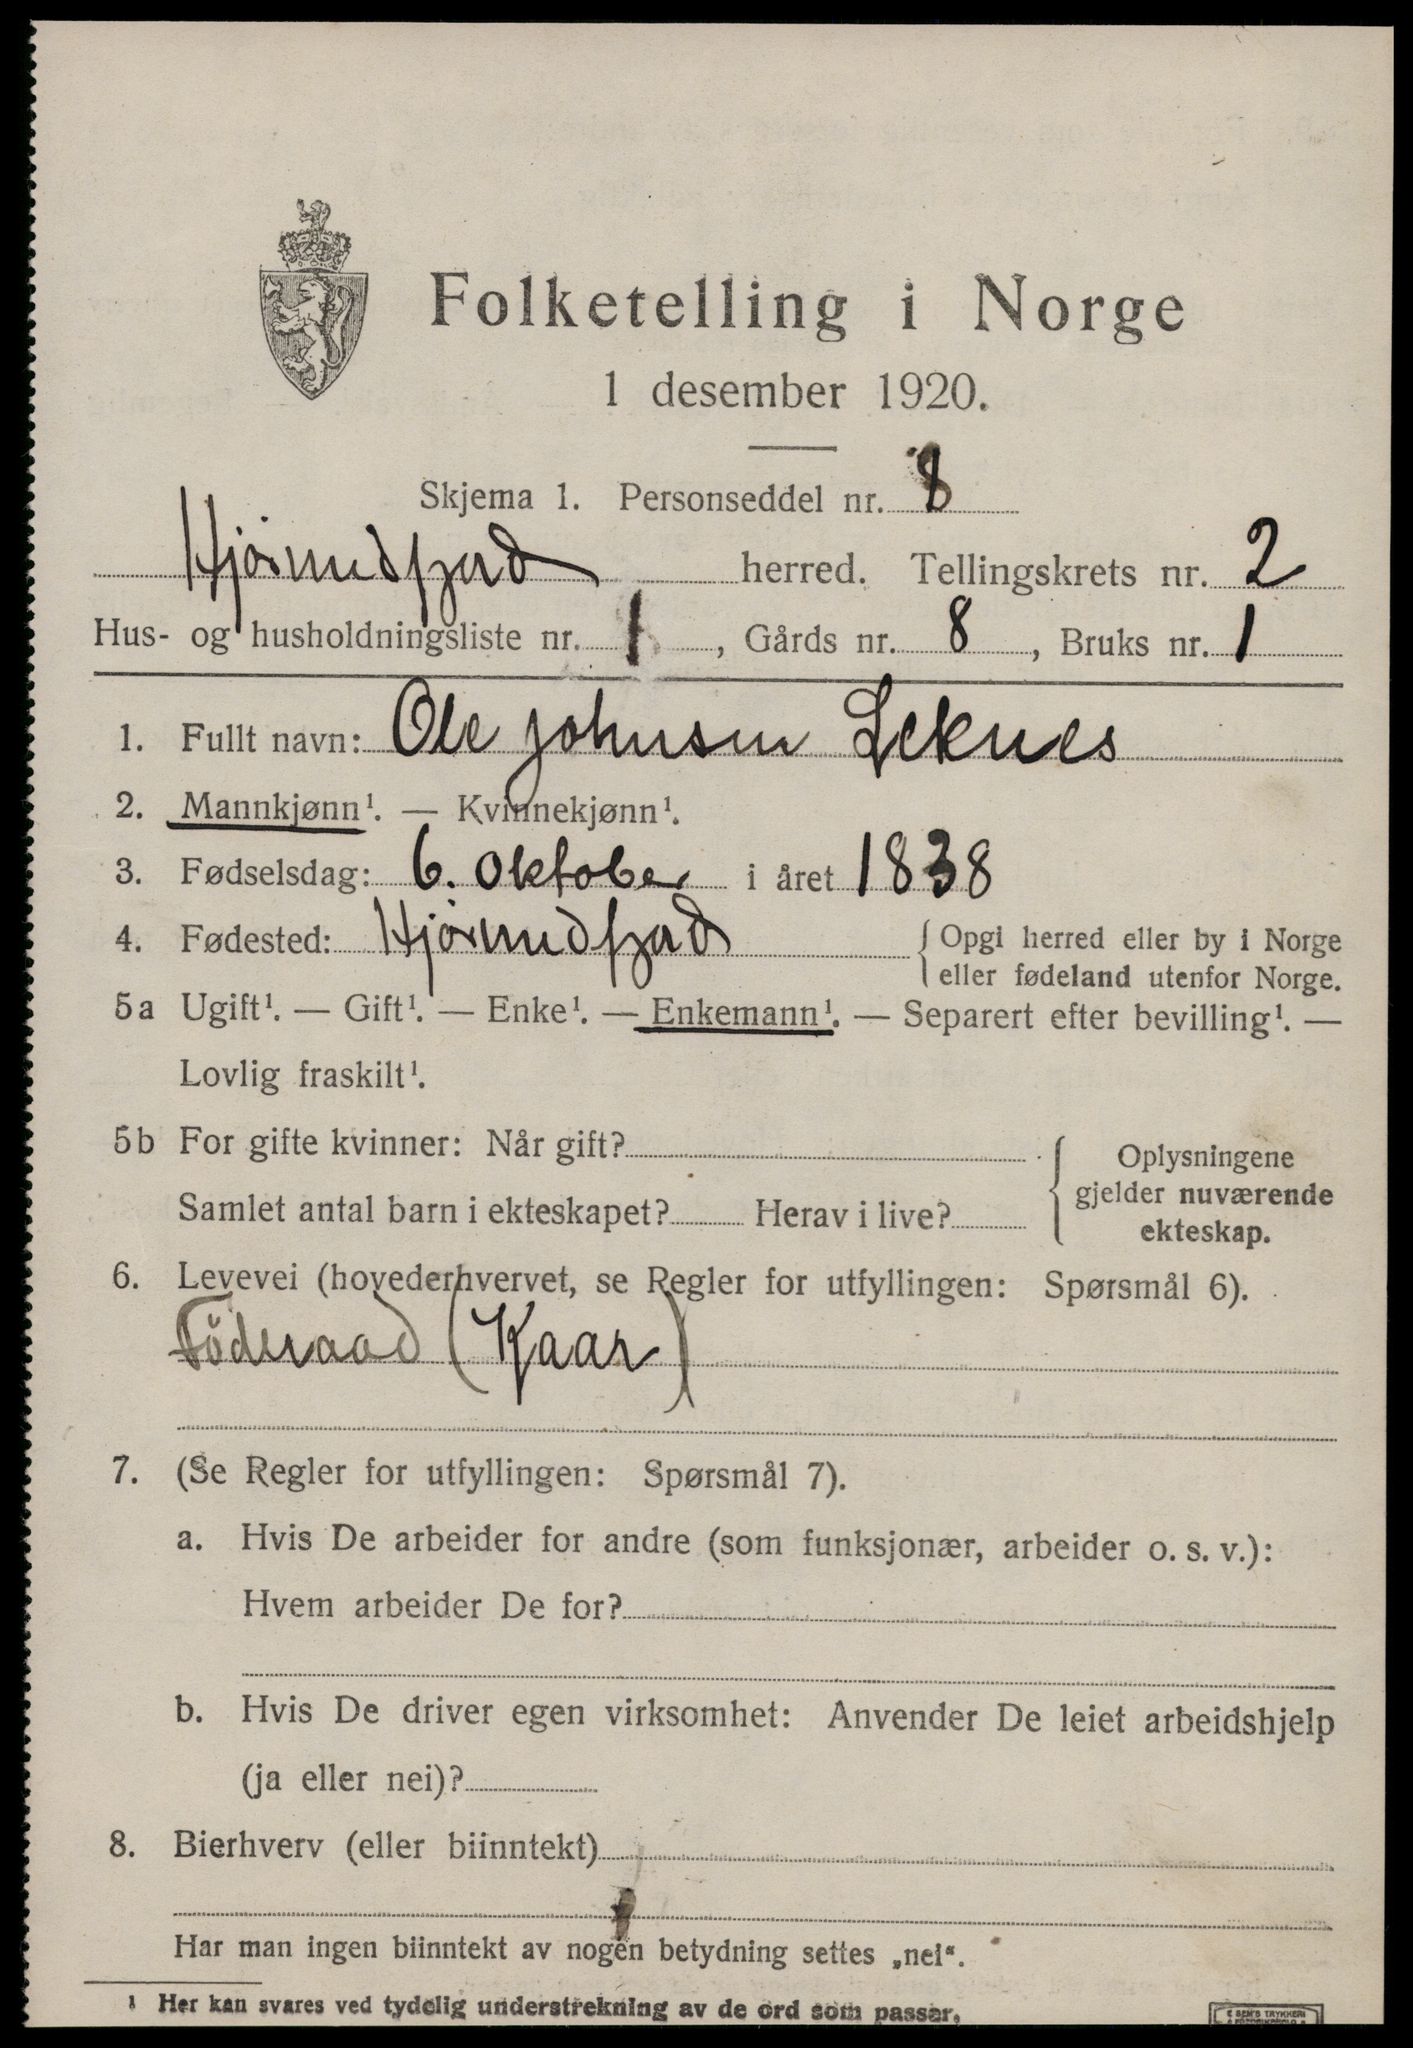 Folketelling i Norge
1 desember 1920.
Skjema 1. Personseddel nr. 8
Hjørundfjord herred. Tellingskrets nr. 2
Hus- og husholdningsliste nr. 1, Gårds nr. 8, Bruks nr. 1
1. Fullt navn: Ole Johnsen Leknes
2. Mannkjønn¹. — Kvinnekjønn¹.
3. Fødselsdag: 6. Oktober i året 1838
4. Fødested: Hjørundfjord { Opgi herred eller by i Norge
eller fødeland utenfor Norge.
5a Ugift¹. — Gift¹. — Enke¹. — Enkemann¹. — Separert efter bevilling¹. —
Lovlig fraskilt¹.
5b For gifte kvinner: Når gift?
Samlet antal barn i ekteskapet? Herav i live?
{ Oplysningene
gjelder nuværende
ekteskap.
6. Levevei (hovederhvervet, se Regler for utfyllingen: Spørsmål 6).
Föderaad (Kaar)
7. (Se Regler for utfyllingen: Spørsmål 7).
a. Hvis De arbeider for andre (som funksjonær, arbeider o. s. v.):
Hvem arbeider De for?
b. Hvis De driver egen virksomhet: Anvender De leiet arbeidshjelp
(ja eller nei)?
8. Bierhverv (eller biinntekt)
Har man ingen biinntekt av nogen betydning settes „nei“.
¹ Her kan svares ved tydelig understrekning av de ord som passer.